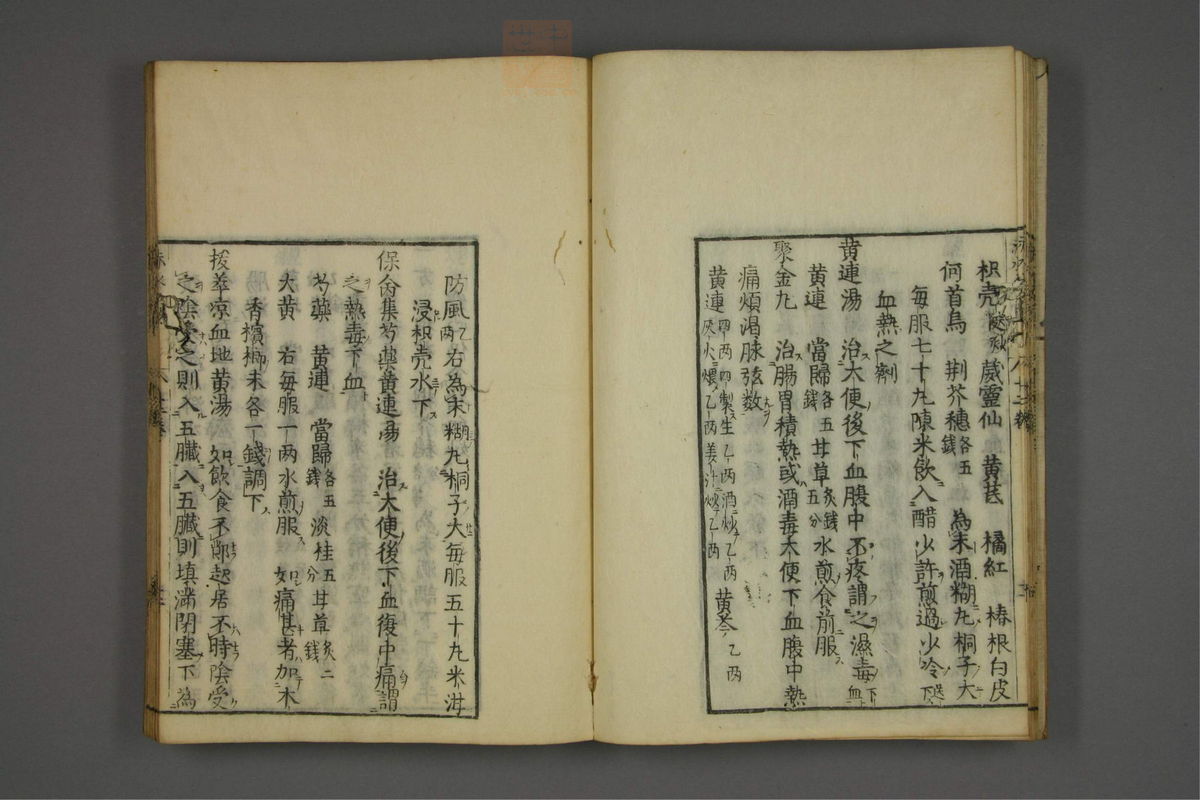 枳壳 葳靈仙 黄芪 橘紅 椿根白皮
何首烏 荆芥穗各五錢 為末酒糊丸桐子大
每服七十丸陳米飲入醋少許煎過少冷下
血熱之劑
黄連湯 治大便後下血腹中不疼謂之濕毒下血
黄連 當歸各五錢 甘草炙錢五分 水煎食前服
聚金丸 治腸胃積熱或酒毒大便下血腹中熱
痛煩渴脉弦数
黄連四両四製生乙両酒炒乙両灰火煨乙両姜汁炒乙両 黄芩乙両
防風乙両 右為末糊丸桐子大每服五十丸米泔
浸枳壳水下
保命集芍藥黄連湯 治大便後下血復中痛謂
之熱毒下血
芍藥 黄連 當歸各五錢 淡桂五分 甘草炙二錢
大黄 右每服一両水煎服 如痛甚者加木
香檳榔末各一錢調下
拔萃凉血地黄湯 如飲食不節起居不時陰受
之陰受之則入五臓入五臓則填満閉塞下為